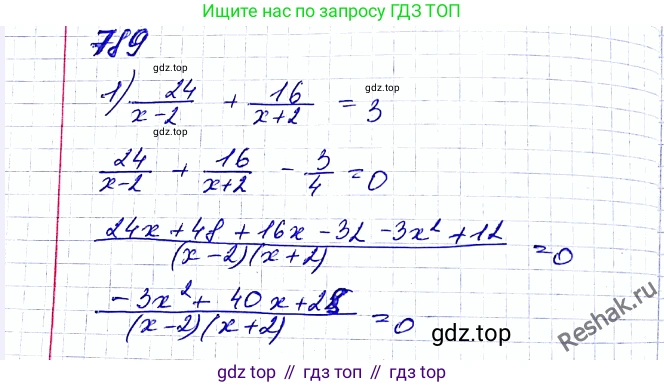 Ищите нас по запросу ГДЗ ТОП
789
gdz.top
1) 24/(x-2) + 16/(x+2) = 3
gdz.top
gdz.top
24/(x-2) + 16/(x+2) - 3/4 = 0
(24x + 48 + 16x - 32 - 3x² + 12)/((x-2)(x+2)) = 0
(-3x² + 40x + 28)/((x-2)(x+2)) = 0
gdz.top
Reshak.ru
gdz.top // гдз топ // гдз.топ